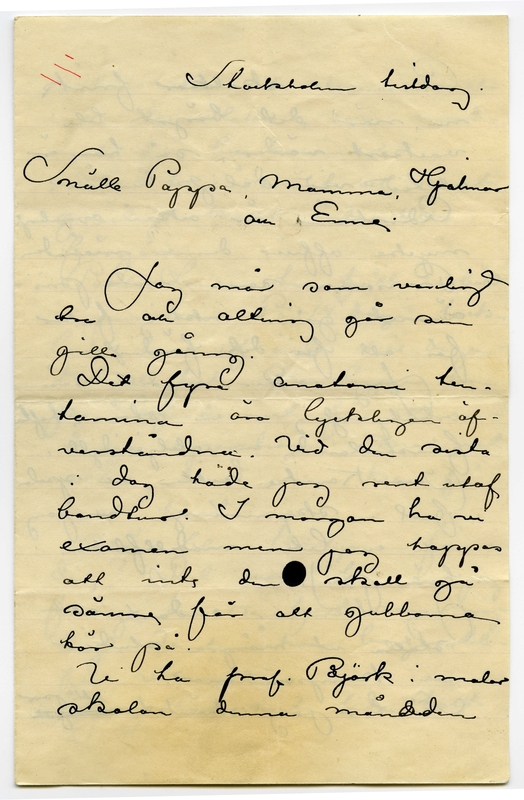 Stockholm lördag.
Snälle Pappa, Mamma, Hjalmar
och Erne,
Jag mår som vanligt
bra och allting går sin
gilla gång.
Det fyra anatomi ten-
tamina äro lyckligen öf-
verståndna. Vid den sista
i dag hade jag rent utaf
bondtur. I morgon ha vi
examen men jag hoppas
att inte den skall gå
sämre för att gubbarna
kör på.
Vi ha prof. Björk i målar
skolan denna månaden